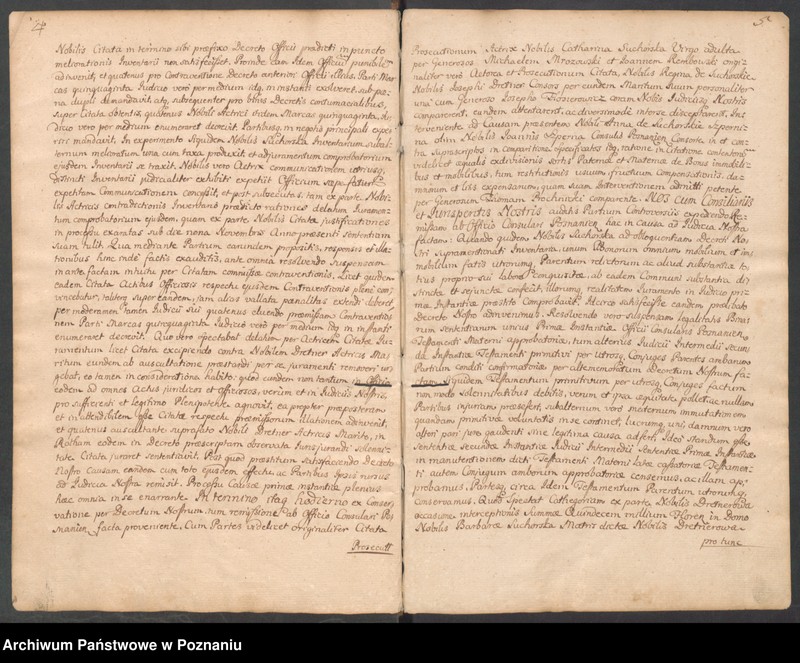 Nobilis Citata in termino sibi præfixo Decreto Officii prædicti in puncto
meliorationis Inventarii non satisfecisset. Proinde eam Idem Officium punibilem
adinvenit, et quatenus pro Contraventione Decreto anteriori Officii illius, Parti Marcas
quinquaginta, Iudicio vero per medium idq. in instanti exolveret sub pœna
dupli demandavit, atq. subsequenter pro binis Decretis contumacialibus,
super Citata obtentis, quatenus Nobili Actrici itidem Marcas quinquaginta, Iudicio
vero per medium enumeraret decrevit, Partibusq. in negotio principali experiri
mandavit. In experimento siquidem Nobilis Suchorska Inventarium substantiarum
melioratum una cum taxa produxit, et ad juramentum comprobatorium
ejusdem Inventarii se traxit, Nobilis vero Actrix communicationem utriusq.
Inventarii judicialiter exhibiti expetiit Officium sæpe fatum
expetitam Communicationem concessit, et post subsecutas tam ex parte Nobilis
Actricis contradictionis Inventario prædicto rationes delatum Juramentum
comprobatorium ejusdem, quam ex parte Nobilis Citatæ justificationes
in processu exaratas sub die nona Novembris Anno præsenti Sententiam
suam tulit. Qua mediante Partium earundem propositis, responsis et allationibus
hinc inde factis exauditis, ante omnia resolvendo suspensam
in ante factam in lite per Citatam commissæ contraventionis, Licet quidem
eadem Citata Actibus Officiosis respectu ejusdem Contraventionis plene convinceretur,
taliterq. super eandem, jam alias vallata pænalitas extendi deberet,
per moderamen tamen Iudicii sui quatenus eluendo præmissam Contraventionem
Parti Marcas quinquaginta Iudicio vero per medium idq. in instanti
enumeraret decrevit. Quo vero spectabat delatum per Actricem Citatæ Juramentum
licet Citata excipiendo contra Nobilem Dretner Actricis Maritum
eundem ab auscultatione præstandi per se juramenti removeri urgebat,
eo tamen in consideratione habito: quod eundem non tantum in Officio
eodem ad omnes Actus juridicos et officiosos, verum et in Iudicio Nostro,
pro sufficienti et legitimo Plenipotente agnovit, ea propter præposteram
et inattendibilem esse Citatæ respectu præmissorum illationem adinvenit,
et quatenus auscultante suprafato Nobili Dretner Actricis Marito, in
Rotham eodem in Decreto præscriptam observata Jurisjurandi solennitate
Citata juraret sententiavit. Post quod præstitum satisfaciendo Decreto
Nostro Causam eandem cum toto ejusdem effectu, ac Partibus ipsis rursus
ad Iudicia Nostra remisit. Processu Causæ primæ instantiæ plenius
hæc omnia in se enarrante. In termino itaq. hodierno ex Conservatione
per Decretum Nostrum, num remissione ab Officio Consulari Posnaniensi
facta proveniente, Cum Partes videlicet originaliter Citata
Prosecuti
Prosecutionum Actrix Nobilis Catharina Suchorska Virgo adulta
per Generosos Michaelem Mrozowski et Joannem Rembowski originaliter
vero Actorea et Prosecutionum Citata, Nobilis Regina de Suchorskie
Nobilis Josephi Dretner Consors per eundem Maritum Suum personaliter
una cum Generoso Josepho Fiorierowicz coram Nobis Iudiciisq. Nostris
comparerent, eandem attentarent, ac diversimode interse disceptarent, Interveniente
ad Causam præsentem Nobili Anna de Suchorskie Szpernina
olim Nobilis Joannis Szperna Consulis Posnaniensis Consorte, in et contra
suprascriptos in comparitione specificatos idq. ratione in Citatione contentorum
videlicet æqualis exdivisionis sortis Paternæ et Maternæ de Bonis immobilibus
et mobilibus, tum restitutionis usuum, fructuum Compensationis, damnorum
et litis expensarum, quam suam Interventionem admitti petente
per Generosum Thomam Prochnicki comparente. NOS cum Consiliariis
et Jurisperitis Nostris auditis Partium Controversiis expediendo remissam
ab Officio Consulari Posnaniensi hac in causa ad Iudicia Nostra
factam: Ajendo quidem Nobilis Suchorska ad obloquentiam Decreti Nostri
supramentionati Inventaria, unum Bonorum omnium mobilium et immobilium
fatis utriusq. Parentum relictorum, ac aliud substantiæ totius
proprio sui labore conquisitæ, ab eadem Communi substantia districtæ
et sejunctæ confecit, illorumq. realitatem Juramento in Iudicio primæ
Instantiæ præstito Comprobavit. Idcirco satisfecisse eandem prælibato
Decreto Nostro adinvenimus. Resolvendo vero suspensam legalitatis Binarum
sententiarum unius Primæ Instantiæ Officii Consularis Posnaniensis
Testamenti Materni approbatoriæ, tum alterius Iudicii Intermedii Secundæ
Instantiæ Testamenti primitivi per utrosq. Conjuges Parentes amborum
Partium conditi confirmatoriæ per altememoratum Decretum Nostrum factam.
Siquidem Testamentum primitivum per utrosq. Conjuges factum
non modo solennitatibus debitis, verum et ipsa æquitate polletiæ nullum
Partibus injuriam præseferat, subalternum vero maternum immutationem
quandam primitivæ voluntatis in se continet, lucrumq. uni, damnum vero
alteri pari jure gaudenti sine legitima causa adfert, Ideo standum esse
Sententiæ, secundæ Instantiæ Iudicii Intermedii Sententiæ Primæ Instantiæ
in manutentionem dicti Testamenti Materni latæ cassatoriæ Testamenti
autem Conjugum amborum approbatoriæ censemus, ac illam approbamus,
Partesq. circa Idem Testamentum Parentum utrorumq.
Conservamus. Quod spectat Cathegoriam ex parte Nobilis Dretnerowa
occasione interceptionis Summæ Quindecem millium Floren. in Domo
Nobilis Barbaræ Suchorska Matris dictæ Nobilis Dretnerowa
pro tunc
Archiwum Państwowe w Poznaniu